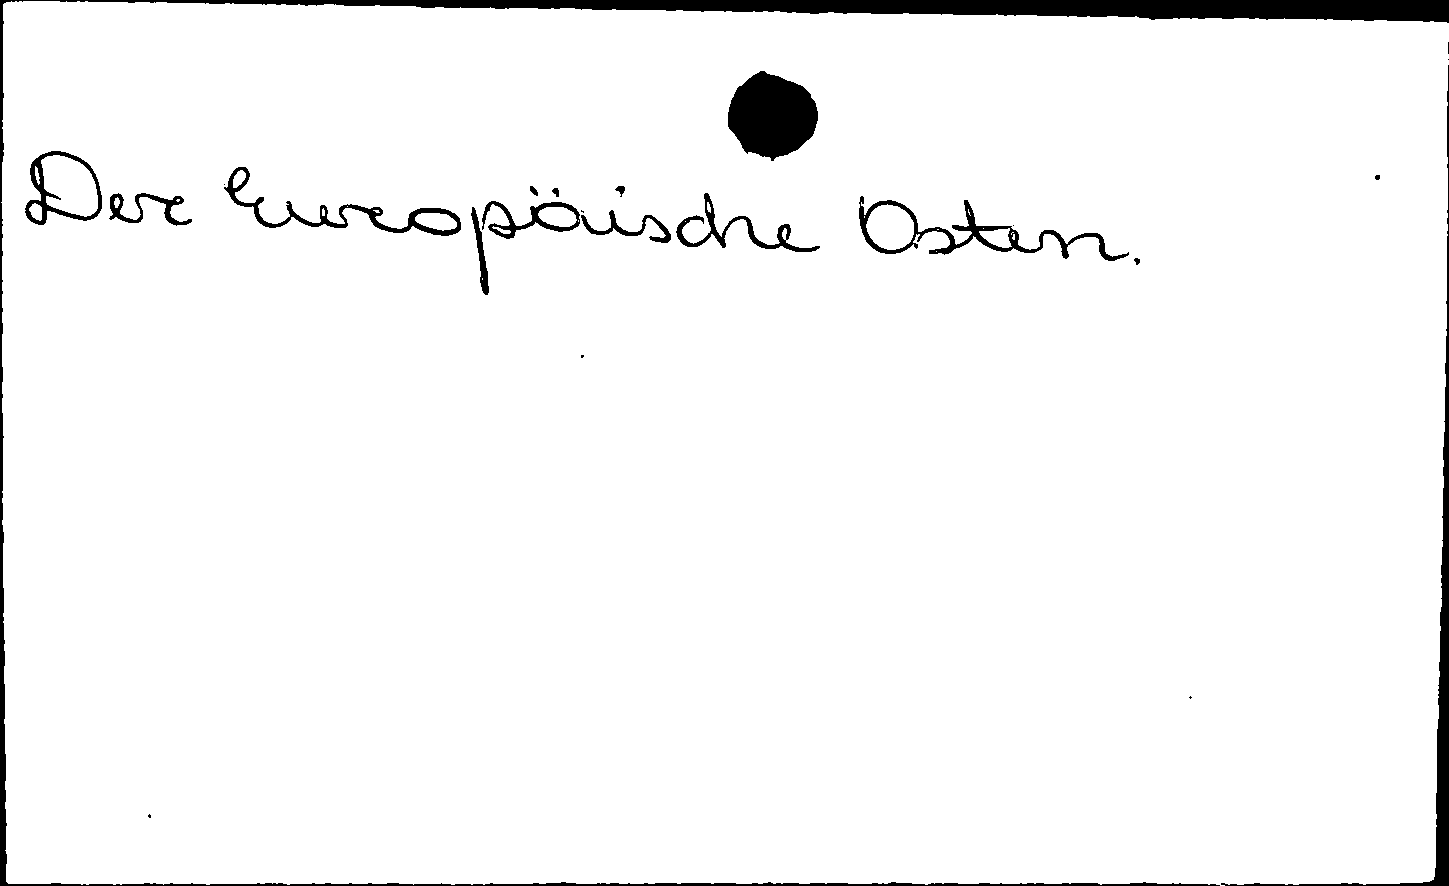 Der Europäische Osten.